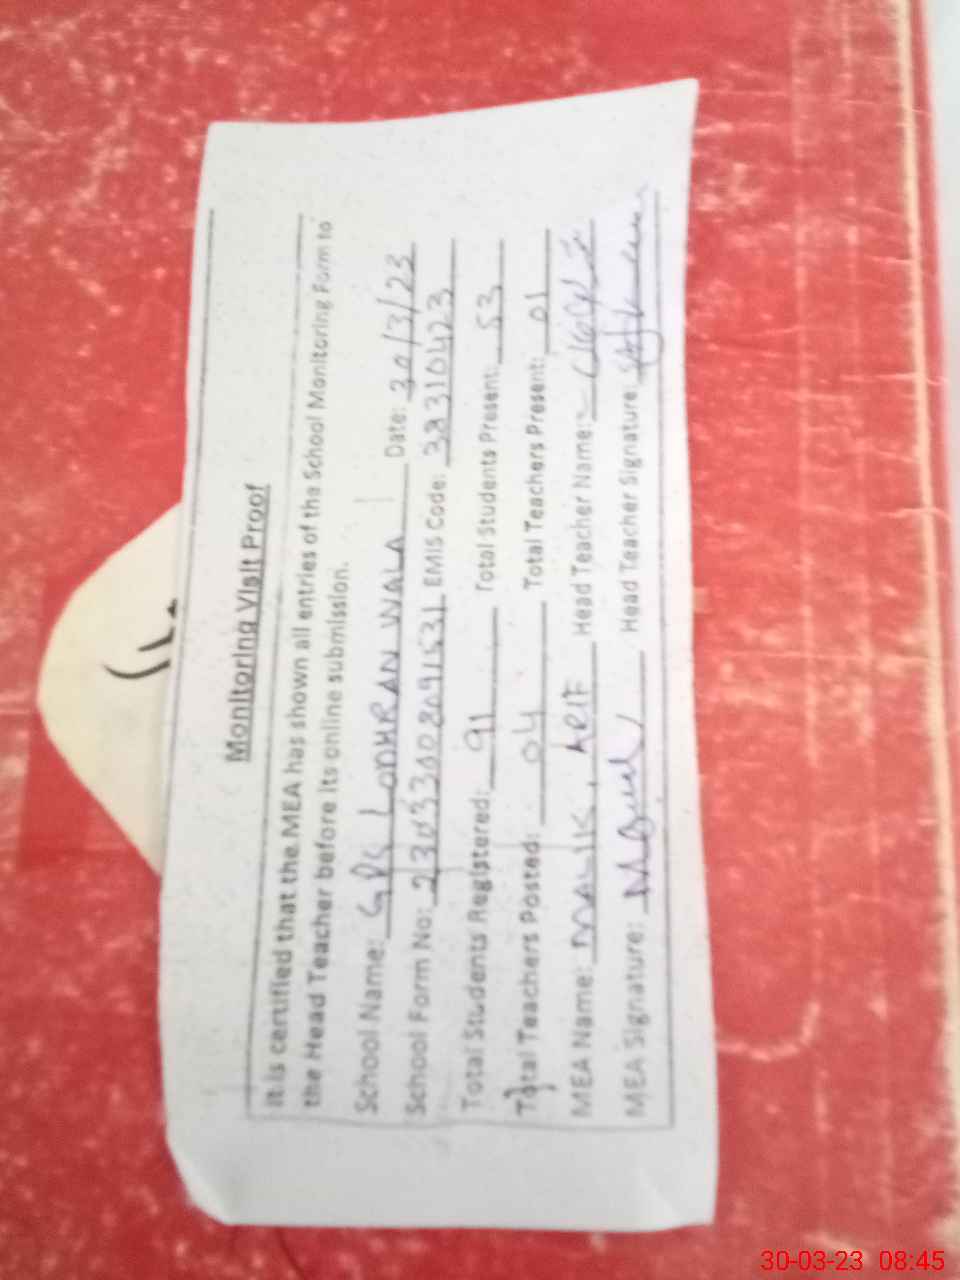 Monitoring Visit Proof
It is certified that the MEA has shown all entries of the School Monitoring Form to
the Head Teacher before its online submission.
School Name: GPS LODHRAN WALA Date: 30/3/23
School Form No: EMIS Code: 32310423
Total Students Registered: 91 Total Students Present: 53
Total Teachers Posted: 04 Total Teachers Present: 01
MEA Name: MALIK, ARIF Head Teacher Name:
MEA Signature: Head Teacher Signature:
30-03-23 08:45